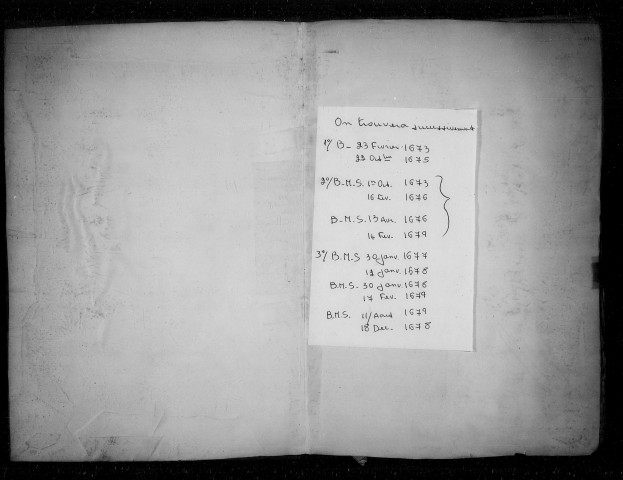 On trouvera successivement
1º/ B - 23 Fevrier 1673
22 Octbre 1675
2º/ B-M-S. 1er Oct. 1673
16 Fev. 1676
B-M-S. 13 Avr. 1676
14 Fev. 1679
3º/ B.M.S 30 janv. 1677
12 janv. 1678
B.M.S. 30 janv. 1678
17 Fev. 1679
B.M.S. 11/Aout 1679
18 Dec. 1678